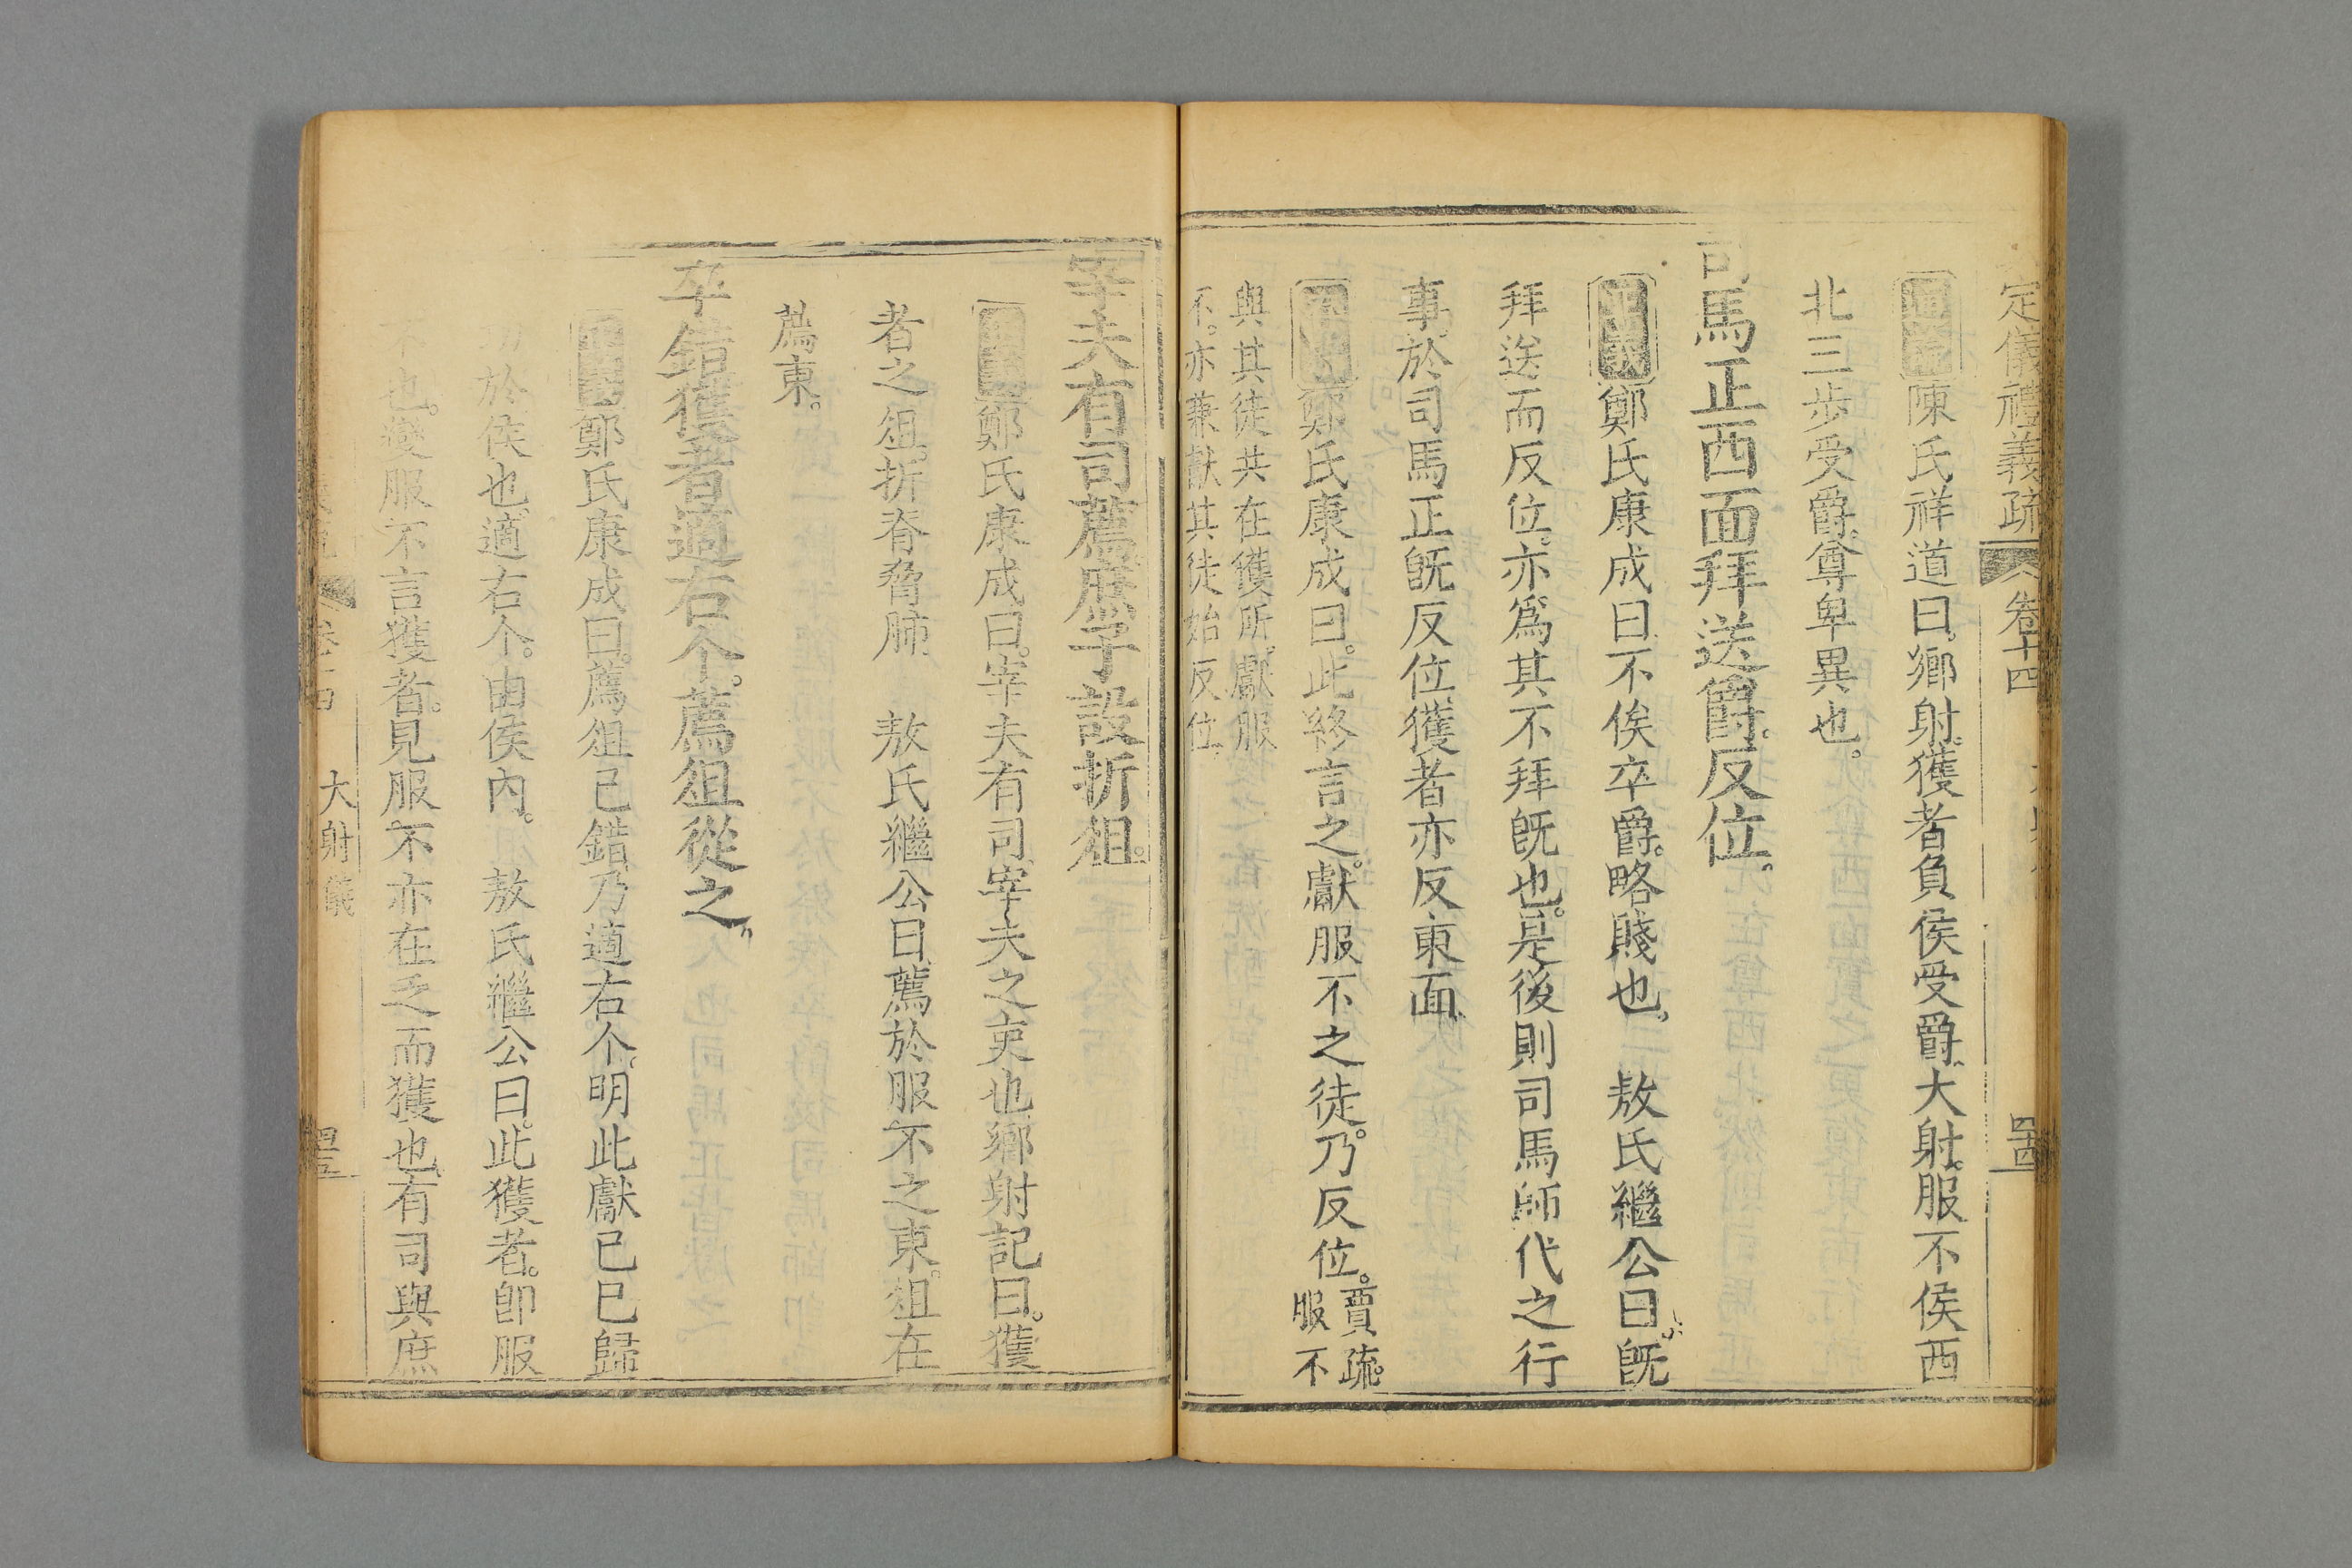 定儀禮義疏 卷十四 四十四
通論陳氏祥道曰。鄉射。獲者負侯受爵。大射。服不侯西
北三步受爵。尊卑異也。
司馬正西面拜送爵。反位。
正義鄭氏康成曰。不俟卒爵。略賤也。 敖氏繼公曰。既
拜送而反位。亦爲其不拜既也。是後則司馬師代之行
事。於司馬正既反位。獲者亦反東面。
鄭氏康成曰。此終言之。獻服不之徒。乃反位。賈疏。服不
與其徒共在獲所。獻服
不。亦兼獻其徒。始反位。
宰夫有司薦。庶子設折俎。
鄭氏康成曰。宰夫有司。宰夫之吏也。鄉射記曰。獲
者之俎。折脊脅肺。 敖氏繼公曰。薦於服不之東。俎在
薦東。
卒錯。獲者適右个。薦俎從之。
鄭氏康成曰。薦俎已錯。乃適右个。明此獻已已歸
功於侯也。適右个。由侯內。 敖氏繼公曰。此獲者。卽服
不也。變服不言獲者。見服不亦在乏而獲也。有司與庶
大射儀 四十五